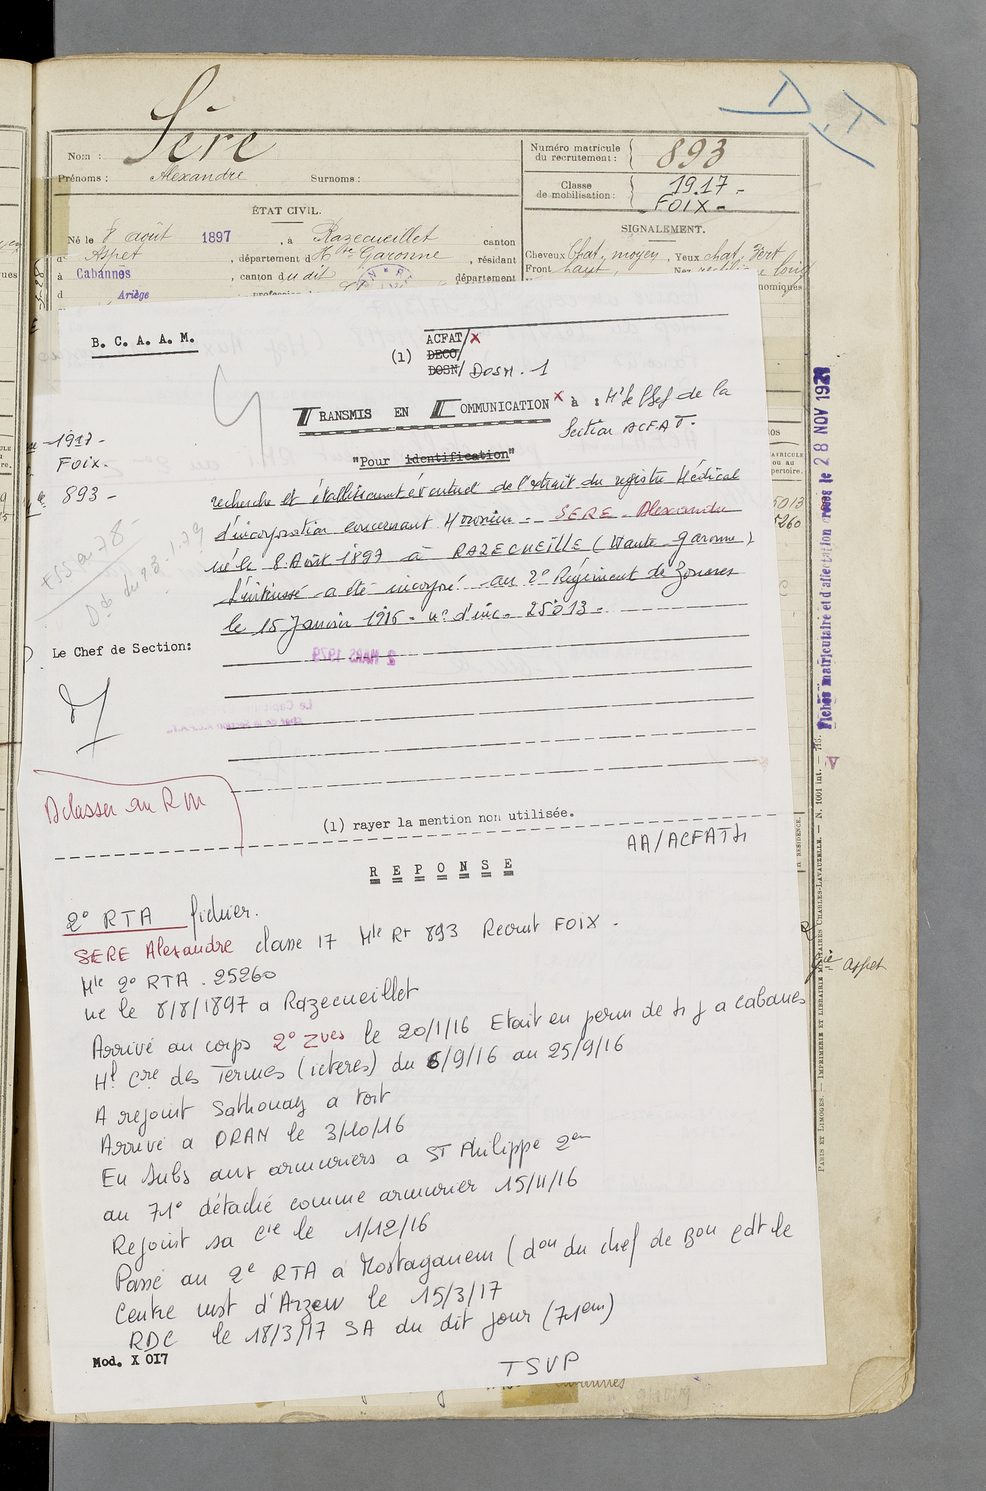 Nom : Sère
Prénoms : Alexandre Surnoms :
Numéro matricule du recrutement : 893
Classe de mobilisation : 1917 -
FOIX -
ÉTAT CIVIL.
Né le 8 août 1897, à Razecueillet canton
d' Aspet, département d Hte Garonne, résidant
à Cabannes, canton du dit département
d Ariège
SIGNALEMENT.
Cheveux Chat. moyen, Yeux chat. Vert
Front haut, Nez rectiligne long
D. T
B. C. A. A. M.
(1) ACFAT/x
DECO/
DOSN/ DOSM. 1
TRANSMIS EN COMMUNICATION x à : Mr le Chef de la
Section ACFAT.
"Pour identification"
1917 -
FOIX.
893 -
recherche et établissement éventuel de l'extrait du registre Médical
d'incorporation concernant Monsieur - SERE - Alexandre
né le 8 Août 1897 à RAZECUEILLE (Haute Garonne)
L'intéressé a été incorporé au 2° Régiment de Zouaves
le 15 Janvier 1916 - n° d'inc. 25013 -
Le Chef de Section:
2 MARS 1979
A classer au RM
(1) rayer la mention non utilisée.
AA/ACFAT
REPONSE
2° RTA fichier.
SERE Alexandre classe 17 Mle Rt 893 Recrut FOIX.
Mle 2° RTA. 25260
né le 8/8/1897 a Razecueillet
Arrivé au corps 2° Zves le 20/1/16 Etait en perm de a Cabanes
Hl Cre des Termes (icteres) du 6/9/16 au 25/9/16
A rejoint Sathonay a tort
Arrivé a ORAN le 3/10/16
En subs aux armuriers a ST Philippe
au 71° détaché comme armurier 15/11/16
Rejoint sa Cie le 1/12/16
Passé au 2e RTA a Mostaganem (don du chef de Bon cdt le
Centre inst d'Arzew le 15/3/17
RDC le 18/3/17 SA du dit jour (71em)
Mod. X 017
TSVP
Fiches matriculaire et d'affectation le 28 NOV 192
PARIS ET LIMOGES. — IMPRIMERIE ET LIBRAIRIE MILITAIRES CHARLES-LAVAUZELLE. — N. 1001 int. —
Aspet